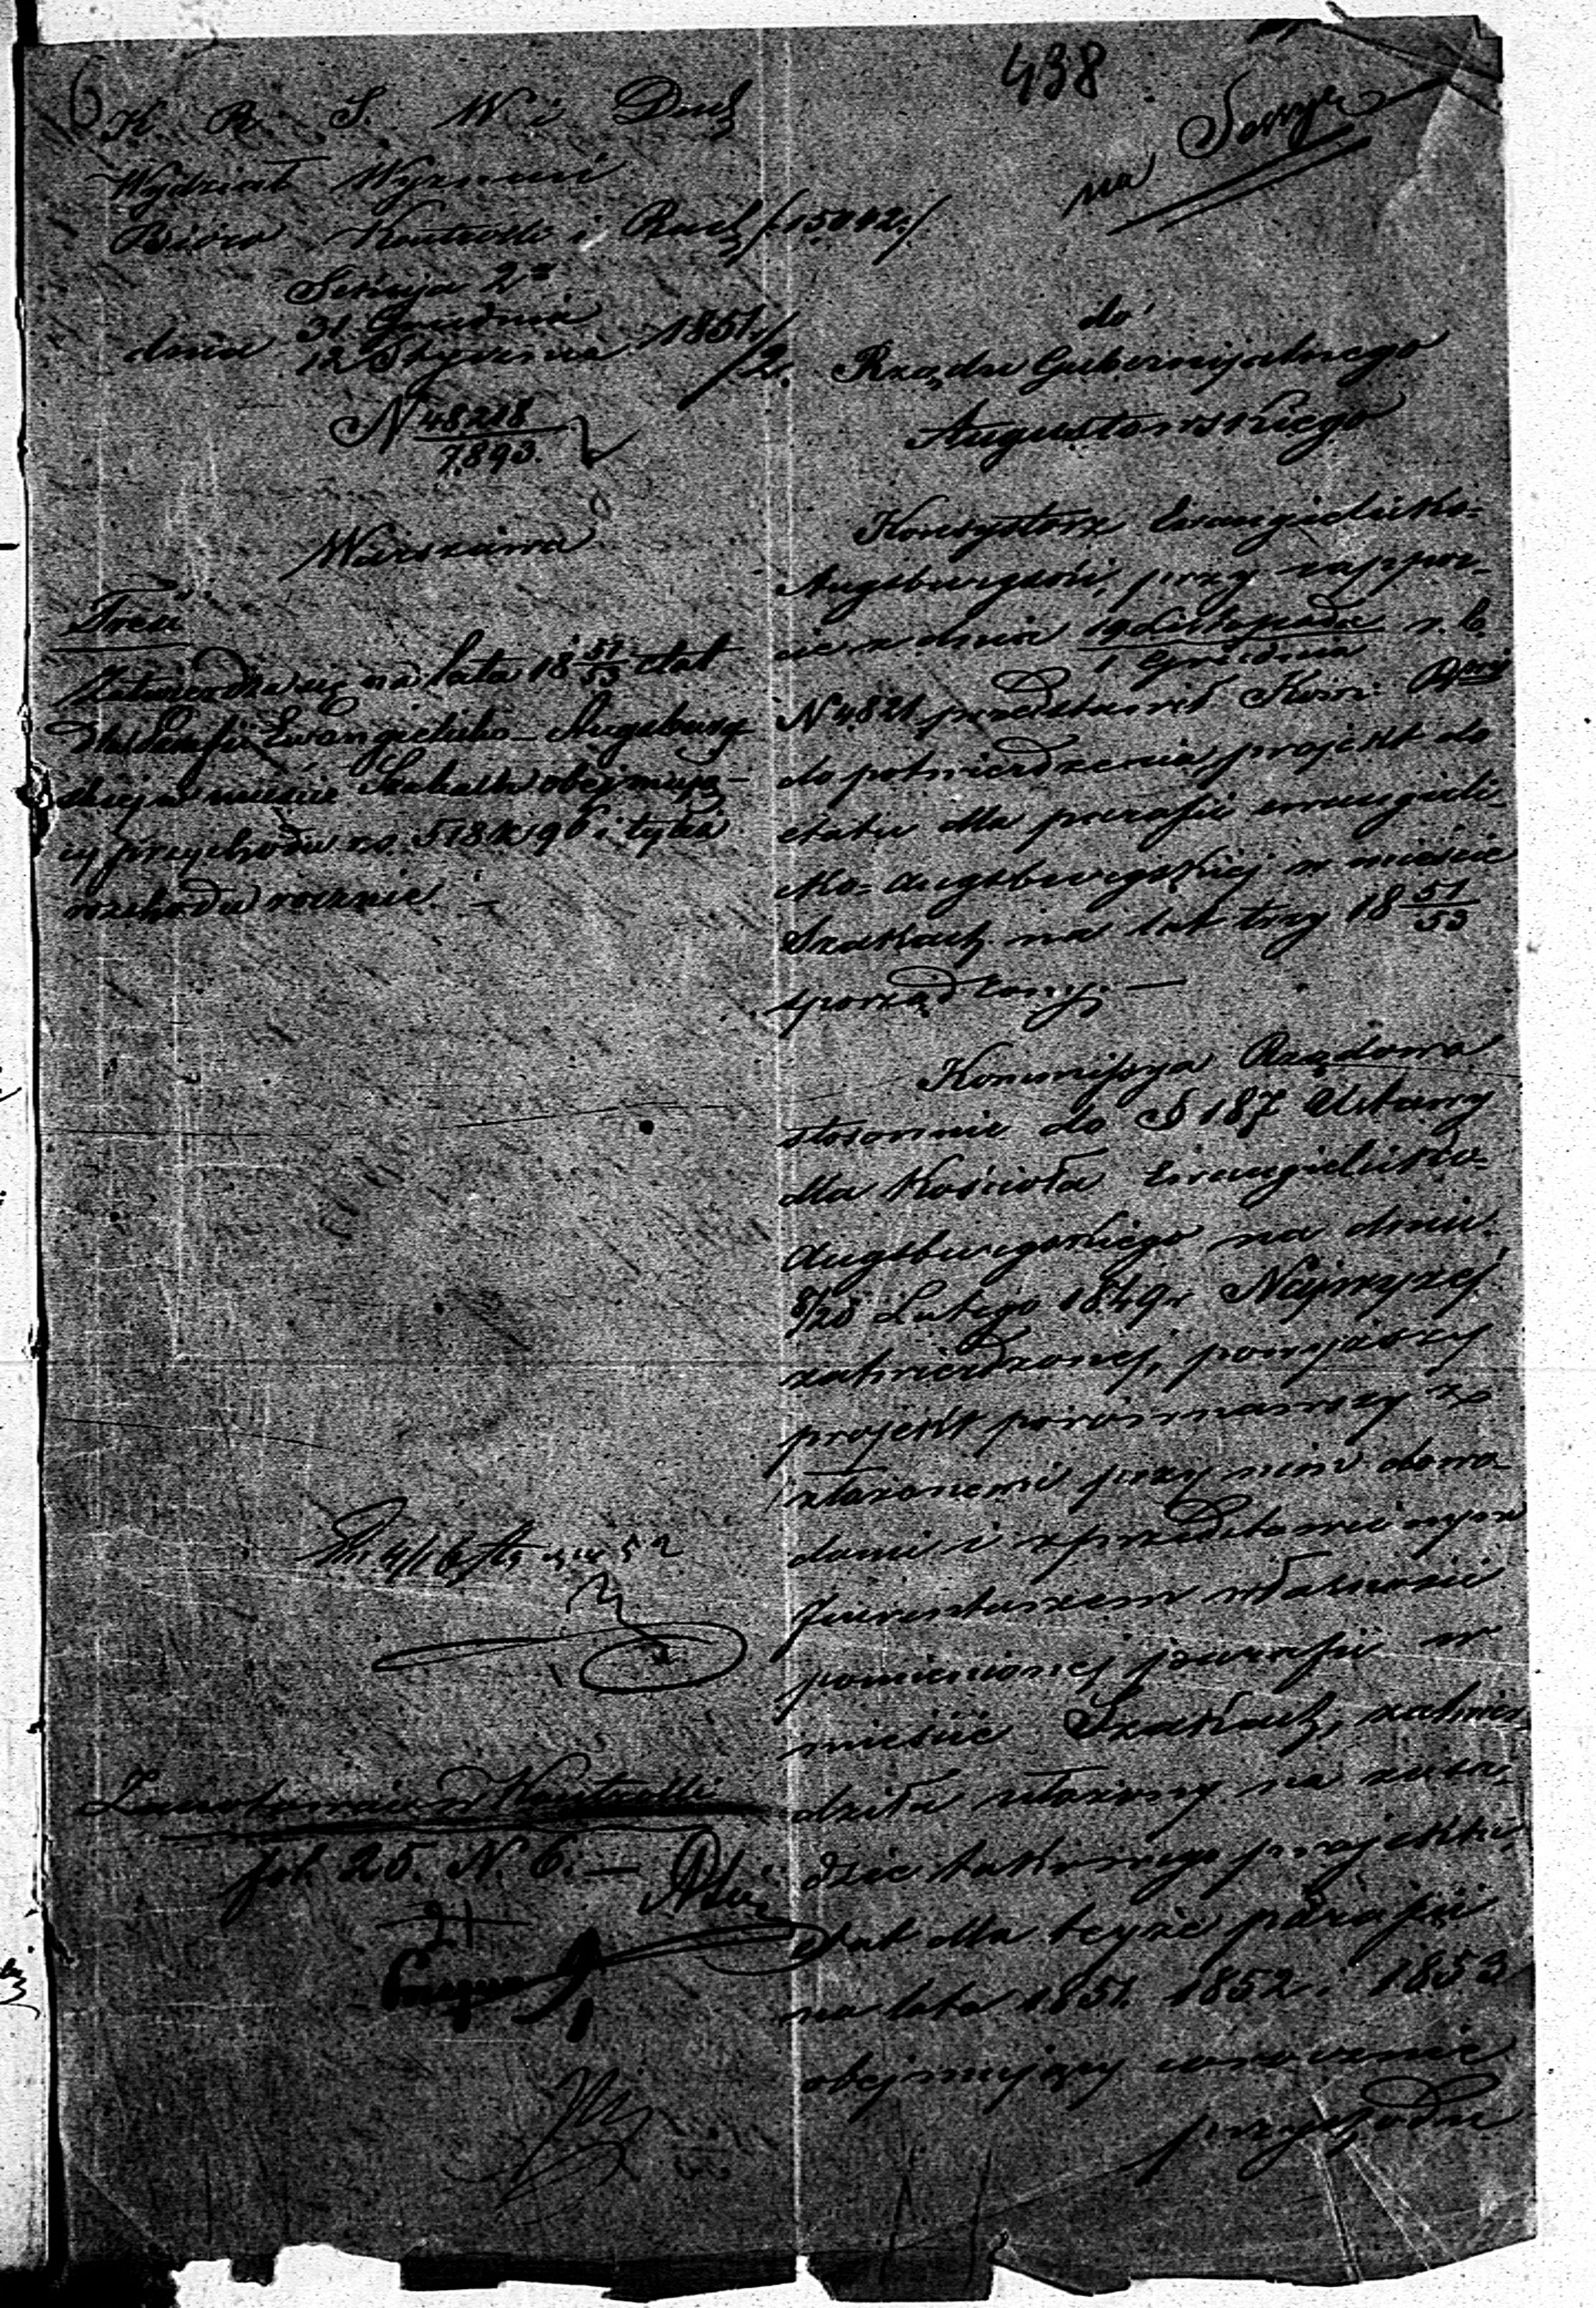 438
K. R. S. W. i Duch
na Sessyi
Wydział Wyznań
Bióro Kontrolli i Rach /:15042:/
Sekcja 2ª
dnia 31 Grudnia / 12 Stycznia 1851/2.
N 48218 / 7893.
Warszawa
Treść
Zatwierdza się na lata 18 51/53 etat
dla Parafii Ewangielicko-Augsburg-
skiej w mieście Szakach obejmują-
cy przychodu rs. 518 k 96 i tyleż
rozchodu rocznie.
do
Rządu Gubernijalnego
Augustowskiego
Konsystorz Ewangielicko-
Augsburgski, przy rappor-
cie z dnia 19 Listopada / 1 Grudnia r. b.
N 4821 przedstawił Kom: Rząd:
do potwierdzenia projekt do
etatu dla parafii ewangieli-
cko-augsburgskiej w mieście
Szakach na lat trzy 18 51/53
sporządzony.
Kommissya Rządowa
stosownie do § 187 Ustawy
dla Kościoła Ewangielicko-
Augsburgskiego na dniu
8/20 Lutego 1849 r Najwyżej
zatwierdzonej, powyższy
projekt porównawszy ze
złożonemi przy nim dowo-
dami i z przedstawionym
Inwentarzem własności
pomienionej parafii w
mieście Szakach, zatwier-
dziła ułożony na zasa-
dzie takowego projektu,
etat dla tejże parafii
na lata 1851. 1852 i 1853
obejmujący corocznie
przychodu
Zanotowano w Kontrolli
fol. 25. N. 6.